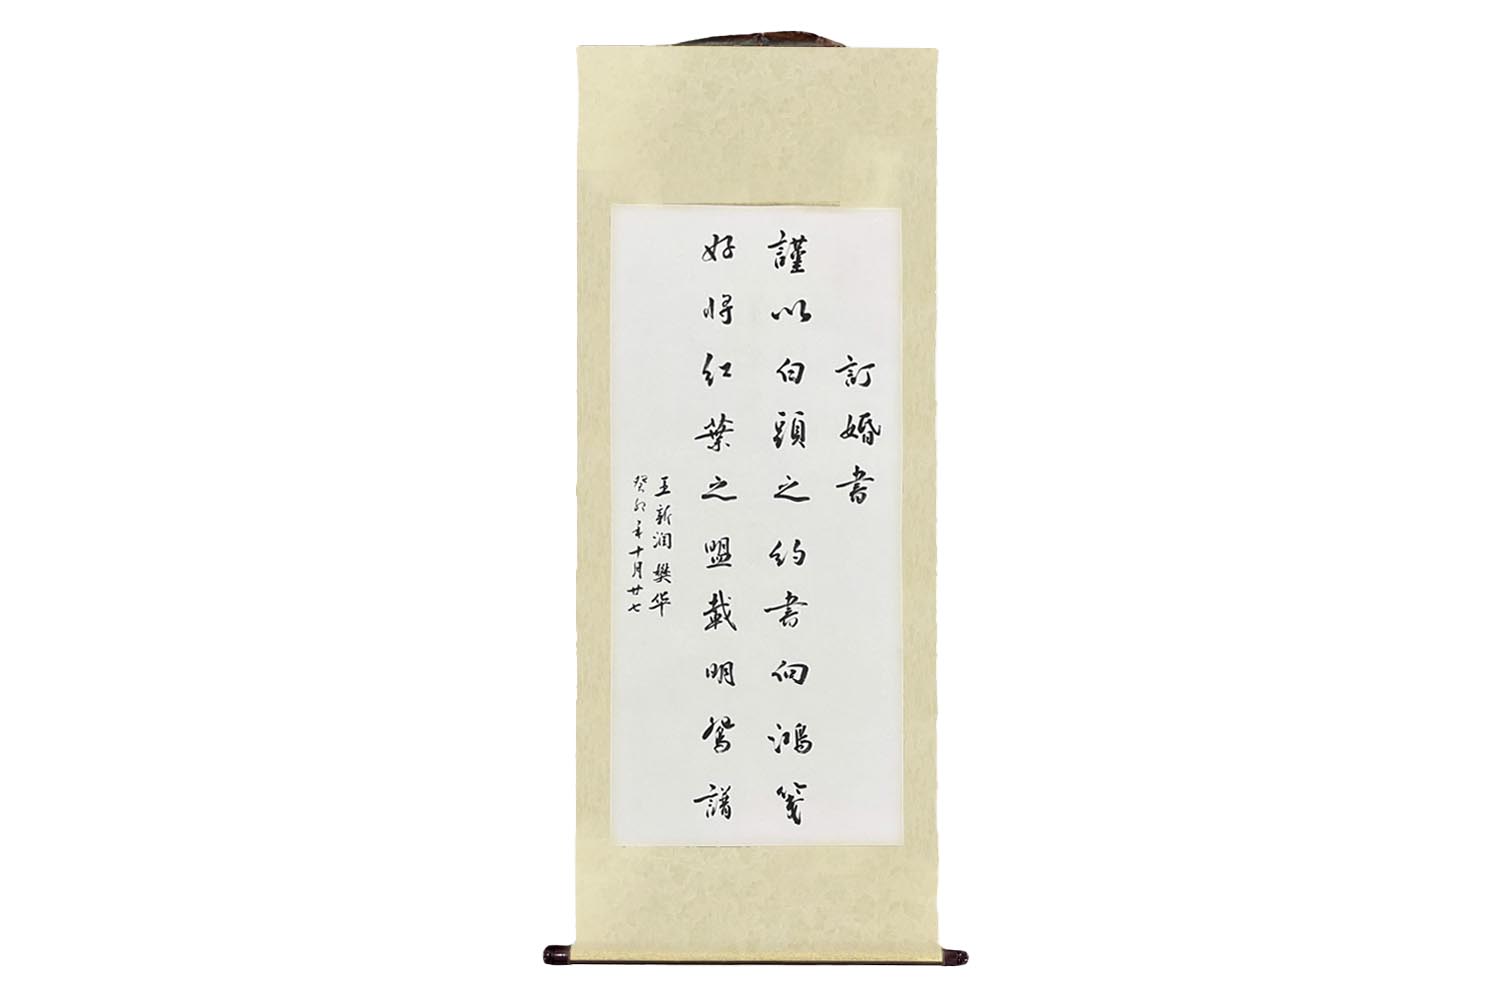 訂婚書
謹以白頭之約書向鴻箋
好将红葉之盟載明鴛譜
王新润 樊华
癸卯年十月廿七